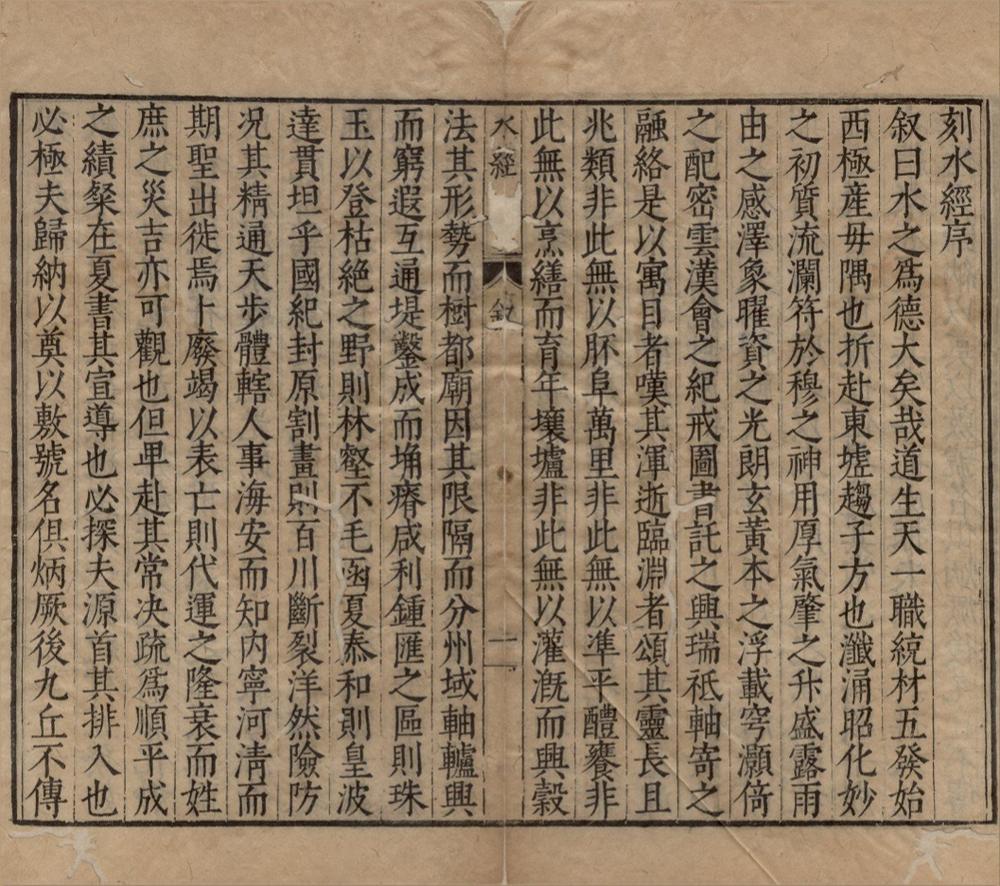 刻水經序
叙曰水之爲德大矣哉道生天一職統材五發始
西極産毋隅也折赴東墟趨子方也瀸涌昭化妙
之初質流瀾符於穆之神用厚氣肇之升盛露雨
由之感澤象曜資之光朗玄黃本之浮載穹灝倚
之配密雲漢會之紀戒圖書託之興瑞祇軸寄之
融絡是以寓目者嘆其渾逝臨淵者頌其靈長且
兆類非此無以胚阜萬里非此無以準平醴饔非
此無以烹繕而育年壤壚非此無以灌溉而興穀
水經 叙 一
法其形勢而樹都廟因其限隔而分州域軸轤興
而窮遐互通堤鑿成而埆瘠咸利鍾匯之區則珠
玉以登枯絶之野則林壑不毛函夏泰和則皇波
達貫坦乎國紀封原割畫則百川斷裂洋然險防
况其精通天步體轄人事海安而知内寧河淸而
期聖出徙焉卜廢竭以表亡則代運之隆衰而姓
庶之災吉亦可觀也但卑赴其常决疏爲順平成
之績粲在夏書其宣導也必探夫源首其排入也
必極夫歸納以奠以敷號名俱炳厥後九丘不傳